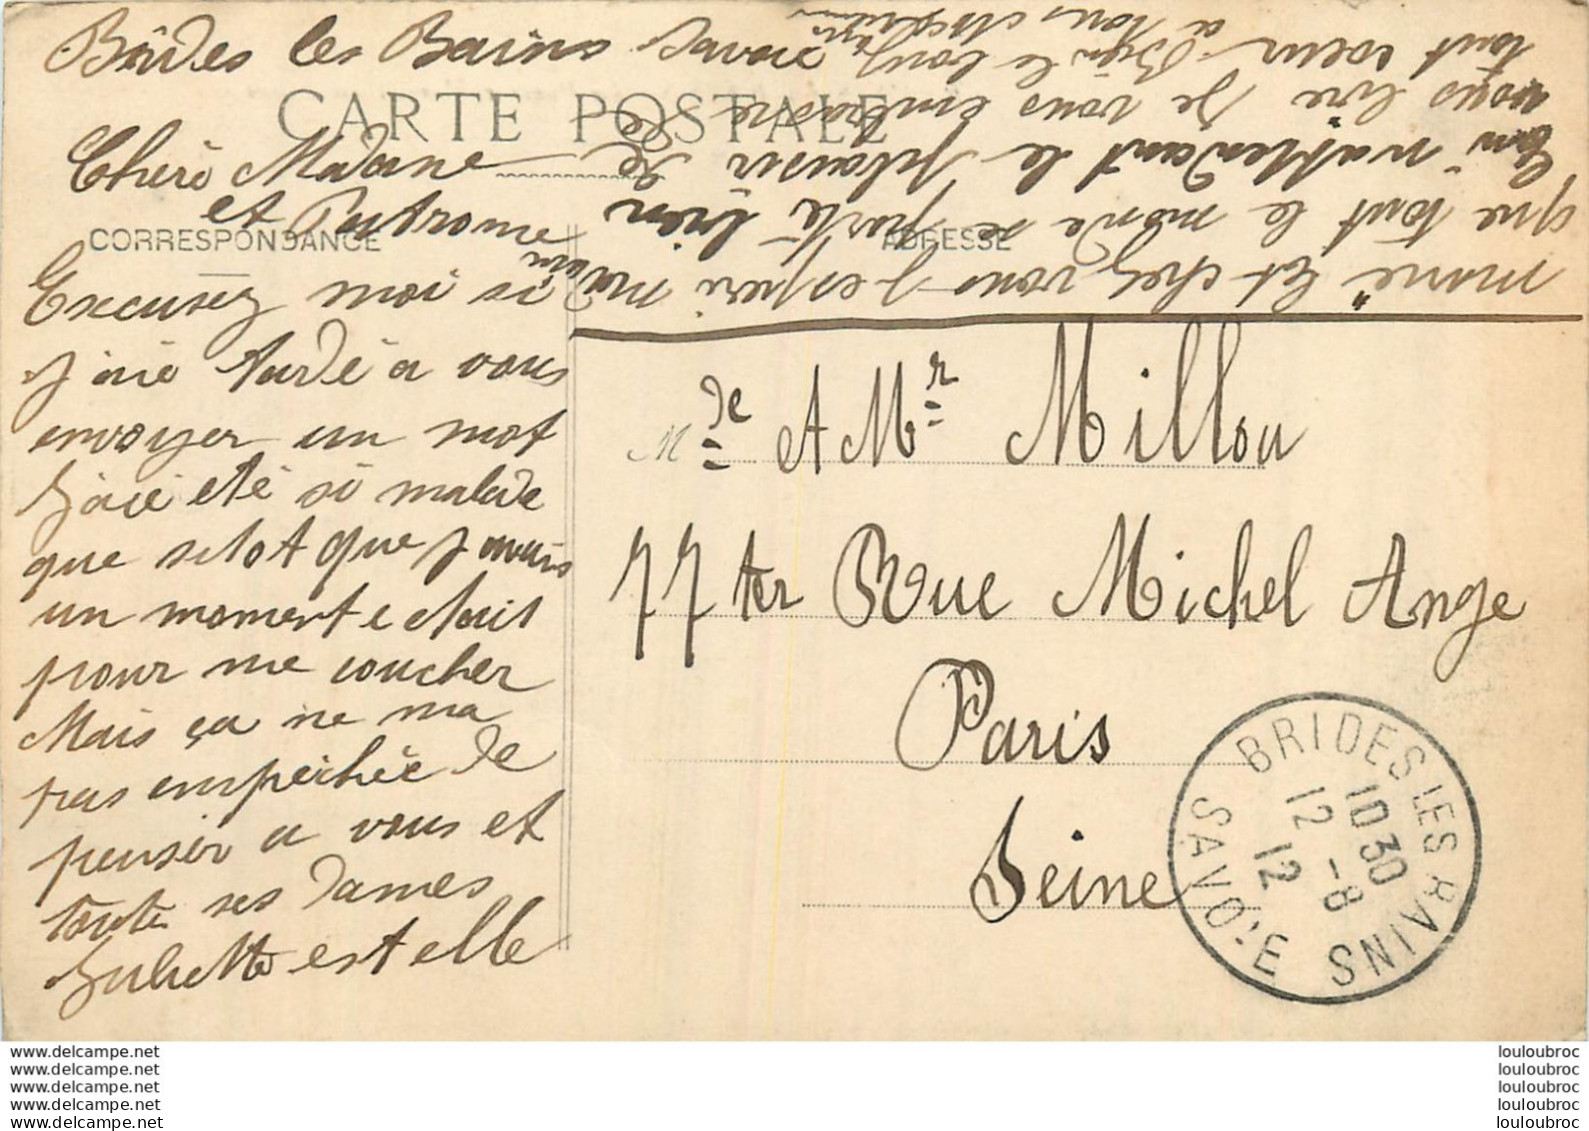 Brides les Bains Savoie
CARTE POSTALE
Chère Madame
et Patronne
CORRESPONDANCE
ADRESSE
Excusez moi si
j aie tardé a vous
envoyer un mot
j aie eté si malade
que sitot que j avais
un moment e etait
pour me coucher
Mais ça ne ma
pas empêchée de
penser a vous et
toute ses dames
Juliette est elle
marié Et chez vous j esperé
que tout le monde se porte bien
Lani n'attendant le plaisir de
vous lire Je vous embrasse de
tout coeur Bien le bonj
a tous
Mde A Mr Millou
77 ter Rue Michel Ange
Paris
Seine
BRIDES LES BAINS
1030
12 -8
12
SAVOIE
www.delcampe.net
www.delcampe.net
www.delcampe.net
www.delcampe.net
www.delcampe.net
louloubroc
louloubroc
louloubroc
louloubroc
louloubroc